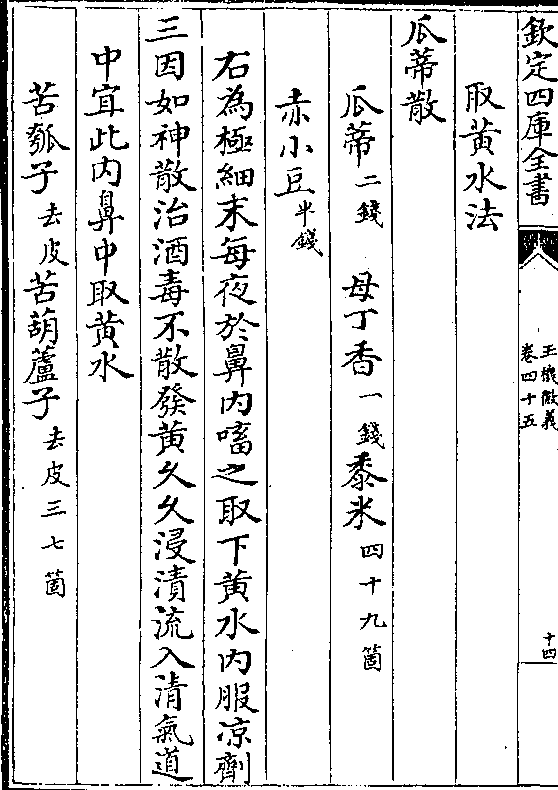 欽定四庫全書
玉機微義
卷四十五
十四
取黃水法
瓜蒂散
瓜蒂二錢 母丁香一錢 黍米四十九箇
赤小豆半錢
右為極細末每夜於鼻内㗜之取下黄水内服凉劑
三因如神散治酒毒不散發黄久久浸漬流入清氣道
中宜此内鼻中取黄水
苦瓠子去皮 苦葫蘆子去皮三七箇